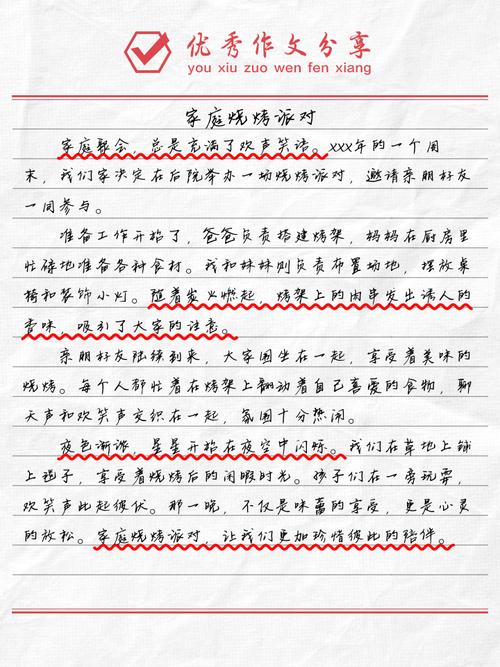 优秀作文分享
you xiu zuo wen fen xiang
家庭烧烤派对
家庭聚会，总是充满了欢声笑语。xxx年的一个周
末，我们家决定在后院举办一场烧烤派对，邀请亲朋好友
一同参与。
准备工作开始了，爸爸负责搭建烤架，妈妈在厨房里
忙碌地准备各种食材。我和妹妹则负责布置场地，摆放桌
椅和装饰小灯。随着炭火燃起，烤架上的肉串发出诱人的
香味，吸引了大家的注意。
亲朋好友陆续到来，大家围坐在一起，享受着美味的
烧烤。每个人都忙着在烤架上翻动着自己喜爱的食物，聊
天声和欢笑声交织在一起，氛围十分热闹。
夜色渐浓，星星开始在夜空中闪烁。我们在草地上铺
上毯子，享受着烧烤后的闲暇时光。孩子们在一旁玩耍，
欢笑声此起彼伏。那一晚，不仅是味蕾的享受，更是心灵
的放松。家庭烧烤派对，让我们更加珍惜彼此的陪伴。